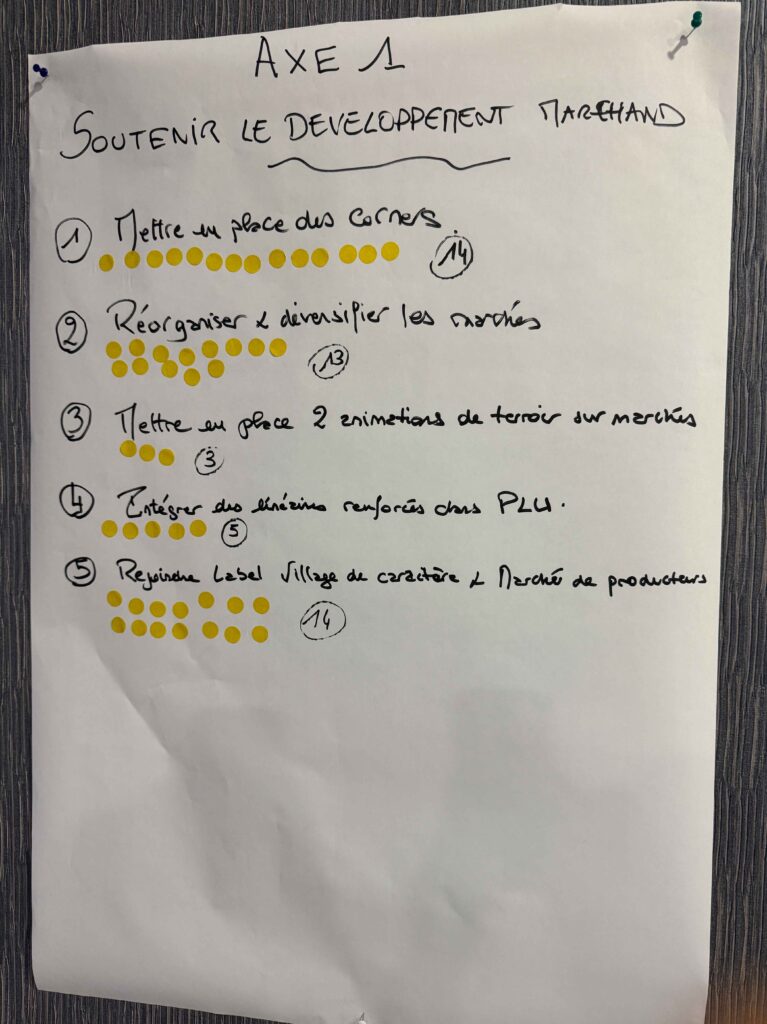 AXE 1
SOUTENIR LE DEVELOPPEMENT MARCHAND
1 Mettre en place des Corners.
14
2 Réorganiser & diversifier les marchés
13
3 Mettre en place 2 animations de terroir sur marchés
3
4 Intégrer des linéaires renforcés dans PLU.
5
5 Rejoindre Label Village de caractère & Marché de producteurs
14